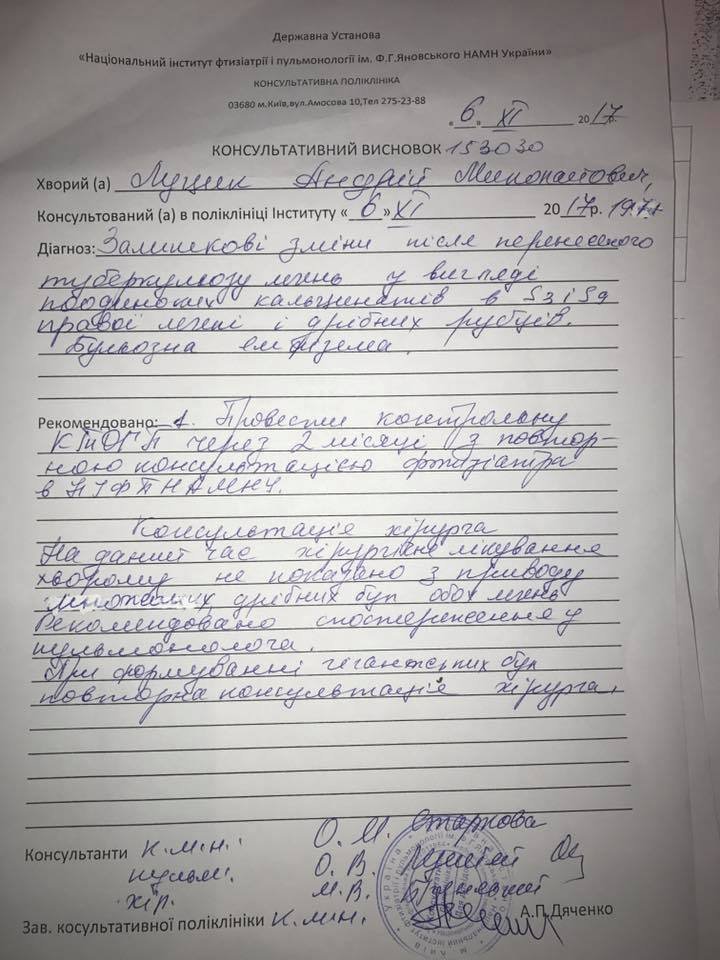 Державна Установа
«Національний інститут фтизіатрії і пульмонології ім. Ф.Г.Яновського НАМН України»
КОНСУЛЬТАТИВНА ПОЛІКЛІНІКА
03680 м.Київ,вул.Амосова 10,Тел 275-23-88
«6» XI 2017р.
КОНСУЛЬТАТИВНИЙ ВИСНОВОК 153030
Хворий (а) Луцик Андрій
Консультований (а) в поліклініці Інституту «6» XI 2017р.
Діагноз: Залишкові зміни після перенесеного
туберкульозу легень у вигляді
поодиноких кальцинатів в S3 і S9
правої легені і дрібних рубців.
Бульозна емфізема.
Рекомендовано: 1. Провести контрольну
КТ ОГП через 2 місяці з повтор-
ною консультацією фтизіатра
в НІФП НАМНУ.
Консультація хірурга
На даний час хірургічне лікування
хворому не показано з приводу
множинних дрібних бул обох легень
Рекомендовано спостереження у
пульмонолога.
При формуванні гігантських бул
повторна консультація хірурга.
Консультанти к.м.н. О. М.
пульм. О. В.
хір. М. В.
Зав. косультативної поліклініки к.м.н. А.П.Дяченко